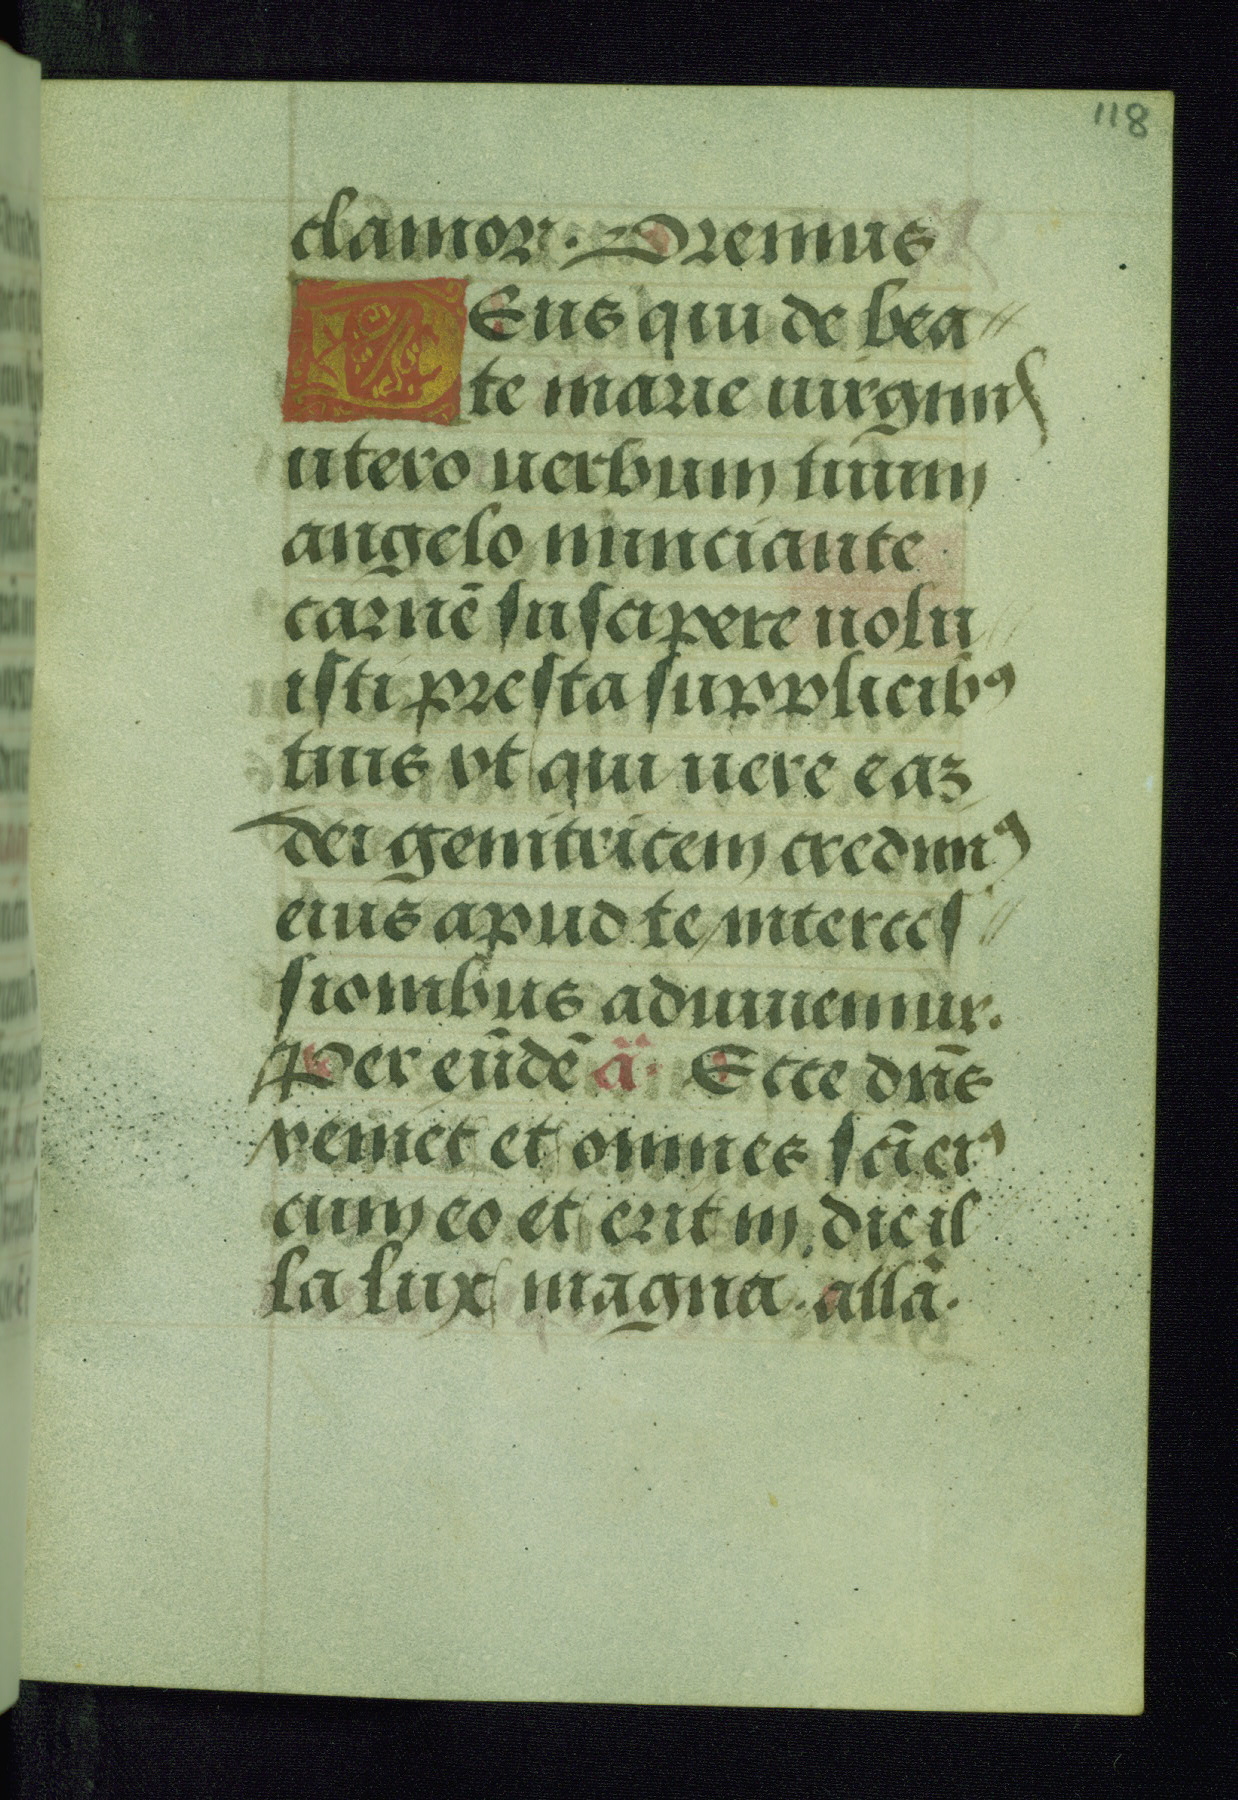 118
clamor. Oremus
DEus qui de bea〃
te marie uirginis
utero uerbum tuum
angelo nunciante
carnē suscipere uolu〃
isti presta supplicibꝰ
tuis vt qui uere eaꝫ
dei genitricem creduntꝰ
eius apud te interces〃
sionibus adiuuemur.
Per eūdē a͞. Ecce dn̄s
veniet et omnes sc̄i eiꝰ
cum eo et erit in die il
la lux magna. allā.